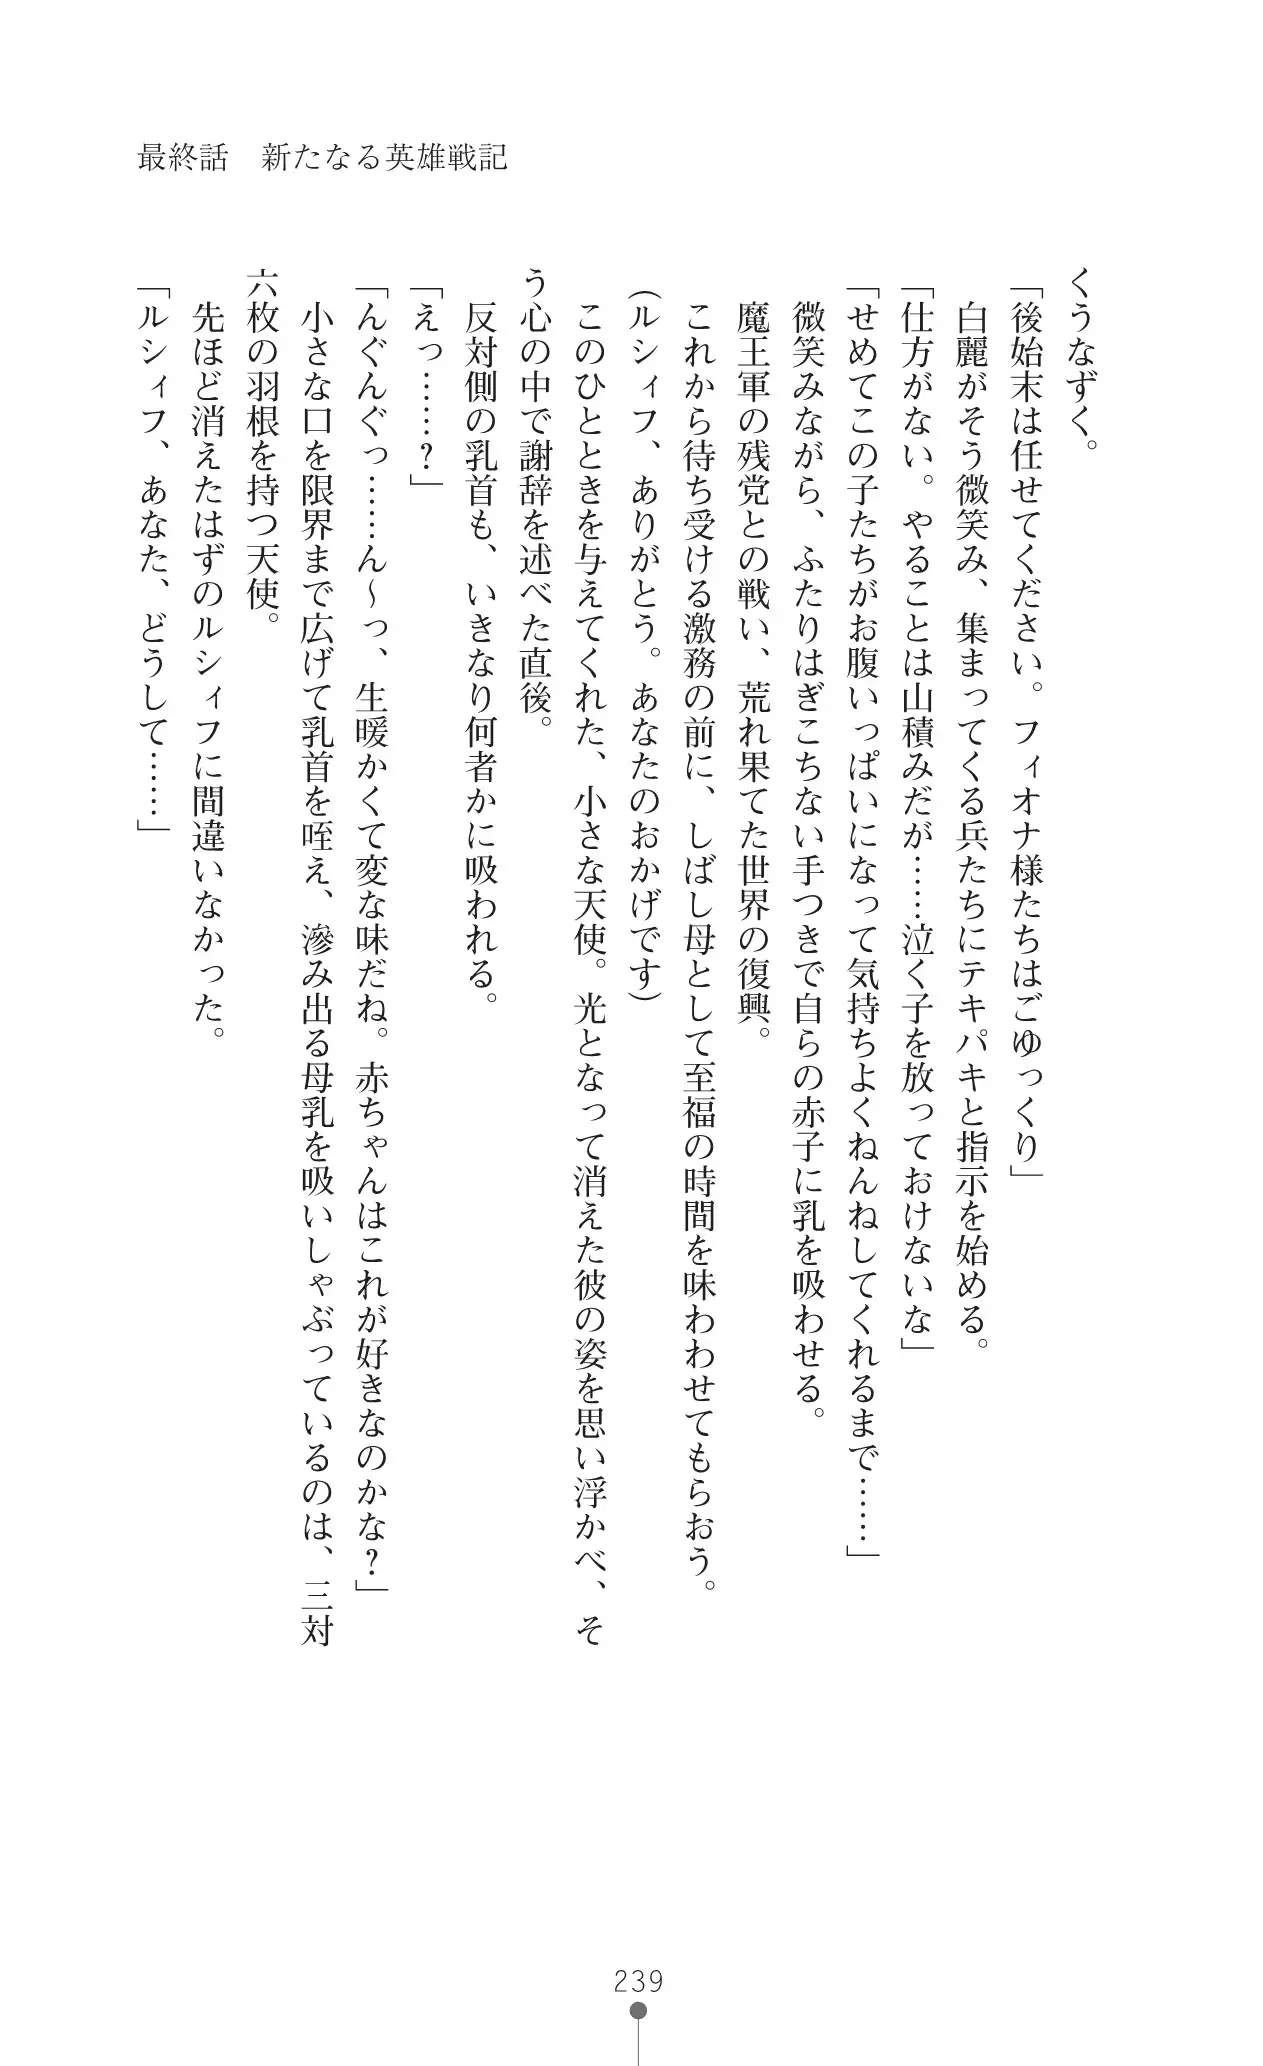 最終話　新たなる英雄戦記
くうなずく。
「後始末は任せてください。フィオナ様たちはごゆっくり」
　白麗がそう微笑み、集まってくる兵たちにテキパキと指示を始める。
「仕方がない。やることは山積みだが……泣く子を放っておけないな」
「せめてこの子たちがお腹いっぱいになって気持ちよくねんねしてくれるまで……」
　微笑みながら、ふたりはぎこちない手つきで自らの赤子に乳を吸わせる。
　魔王軍の残党との戦い、荒れ果てた世界の復興。
　これから待ち受ける激務の前に、しばし母として至福の時間を味わわせてもらおう。
（ルシィフ、ありがとう。あなたのおかげです）
　このひとときを与えてくれた、小さな天使。光となって消えた彼の姿を思い浮かべ、そ
う心の中で謝辞を述べた直後。
　反対側の乳首も、いきなり何者かに吸われる。
「えっ……？」
「んぐんぐっ……ん～っ、生暖かくて変な味だね。赤ちゃんはこれが好きなのかな？」
　小さな口を限界まで広げて乳首を咥え、滲み出る母乳を吸いしゃぶっているのは、三対
六枚の羽根を持つ天使。
　先ほど消えたはずのルシィフに間違いなかった。
「ルシィフ、あなた、どうして……」
239